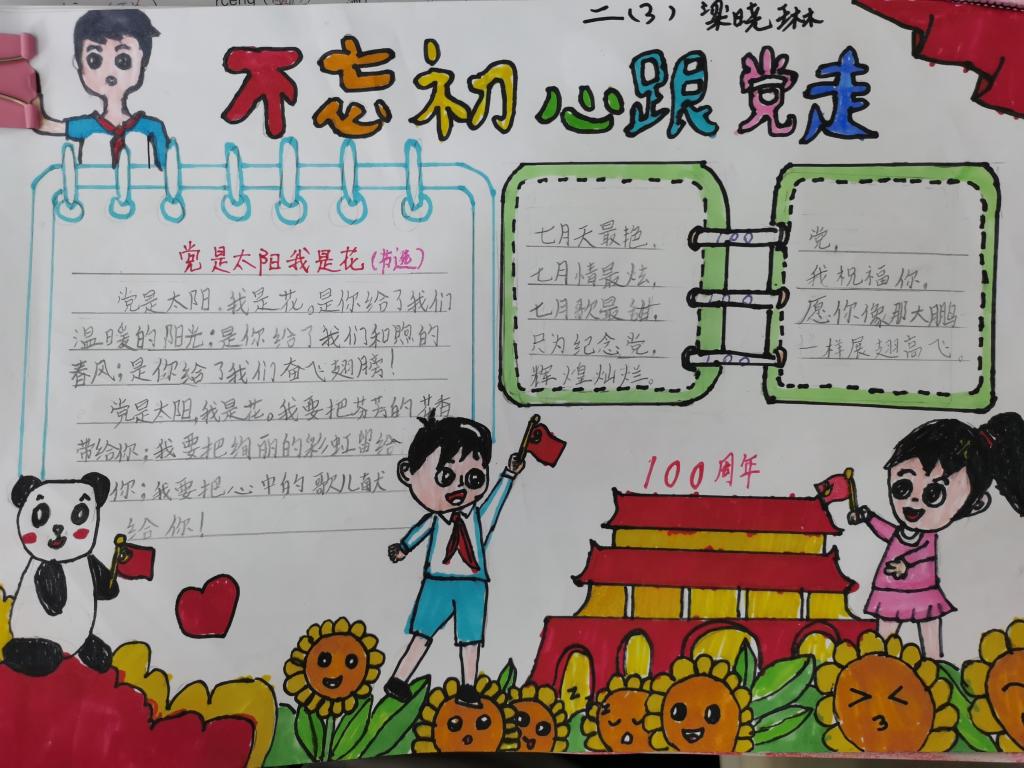 二(3) 梁晓琳
不忘初心跟党走
党是太阳我是花(节选)
党是太阳，我是花。是你给了我们
温暖的阳光；是你给了我们和煦的
春风；是你给了我们奋飞翅膀！
党是太阳，我是花。我要把芬芳的花香
带给你；我要把绚丽的彩虹留给
你；我要把心中的歌儿献
给你！
七月天最艳，
七月情最炫，
七月歌最甜，
只为纪念党，
辉煌灿烂。
100
党，
我祝福你，
愿你像那大鹏
一样展翅高飞。
100周年